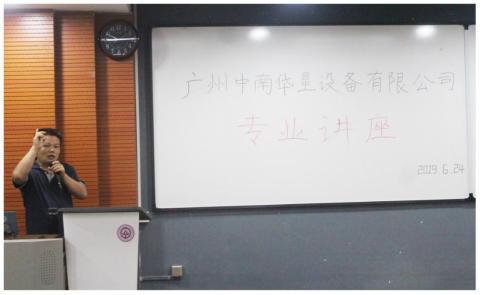 广州中南华星设备有限公司
专业讲座
2019.6.24